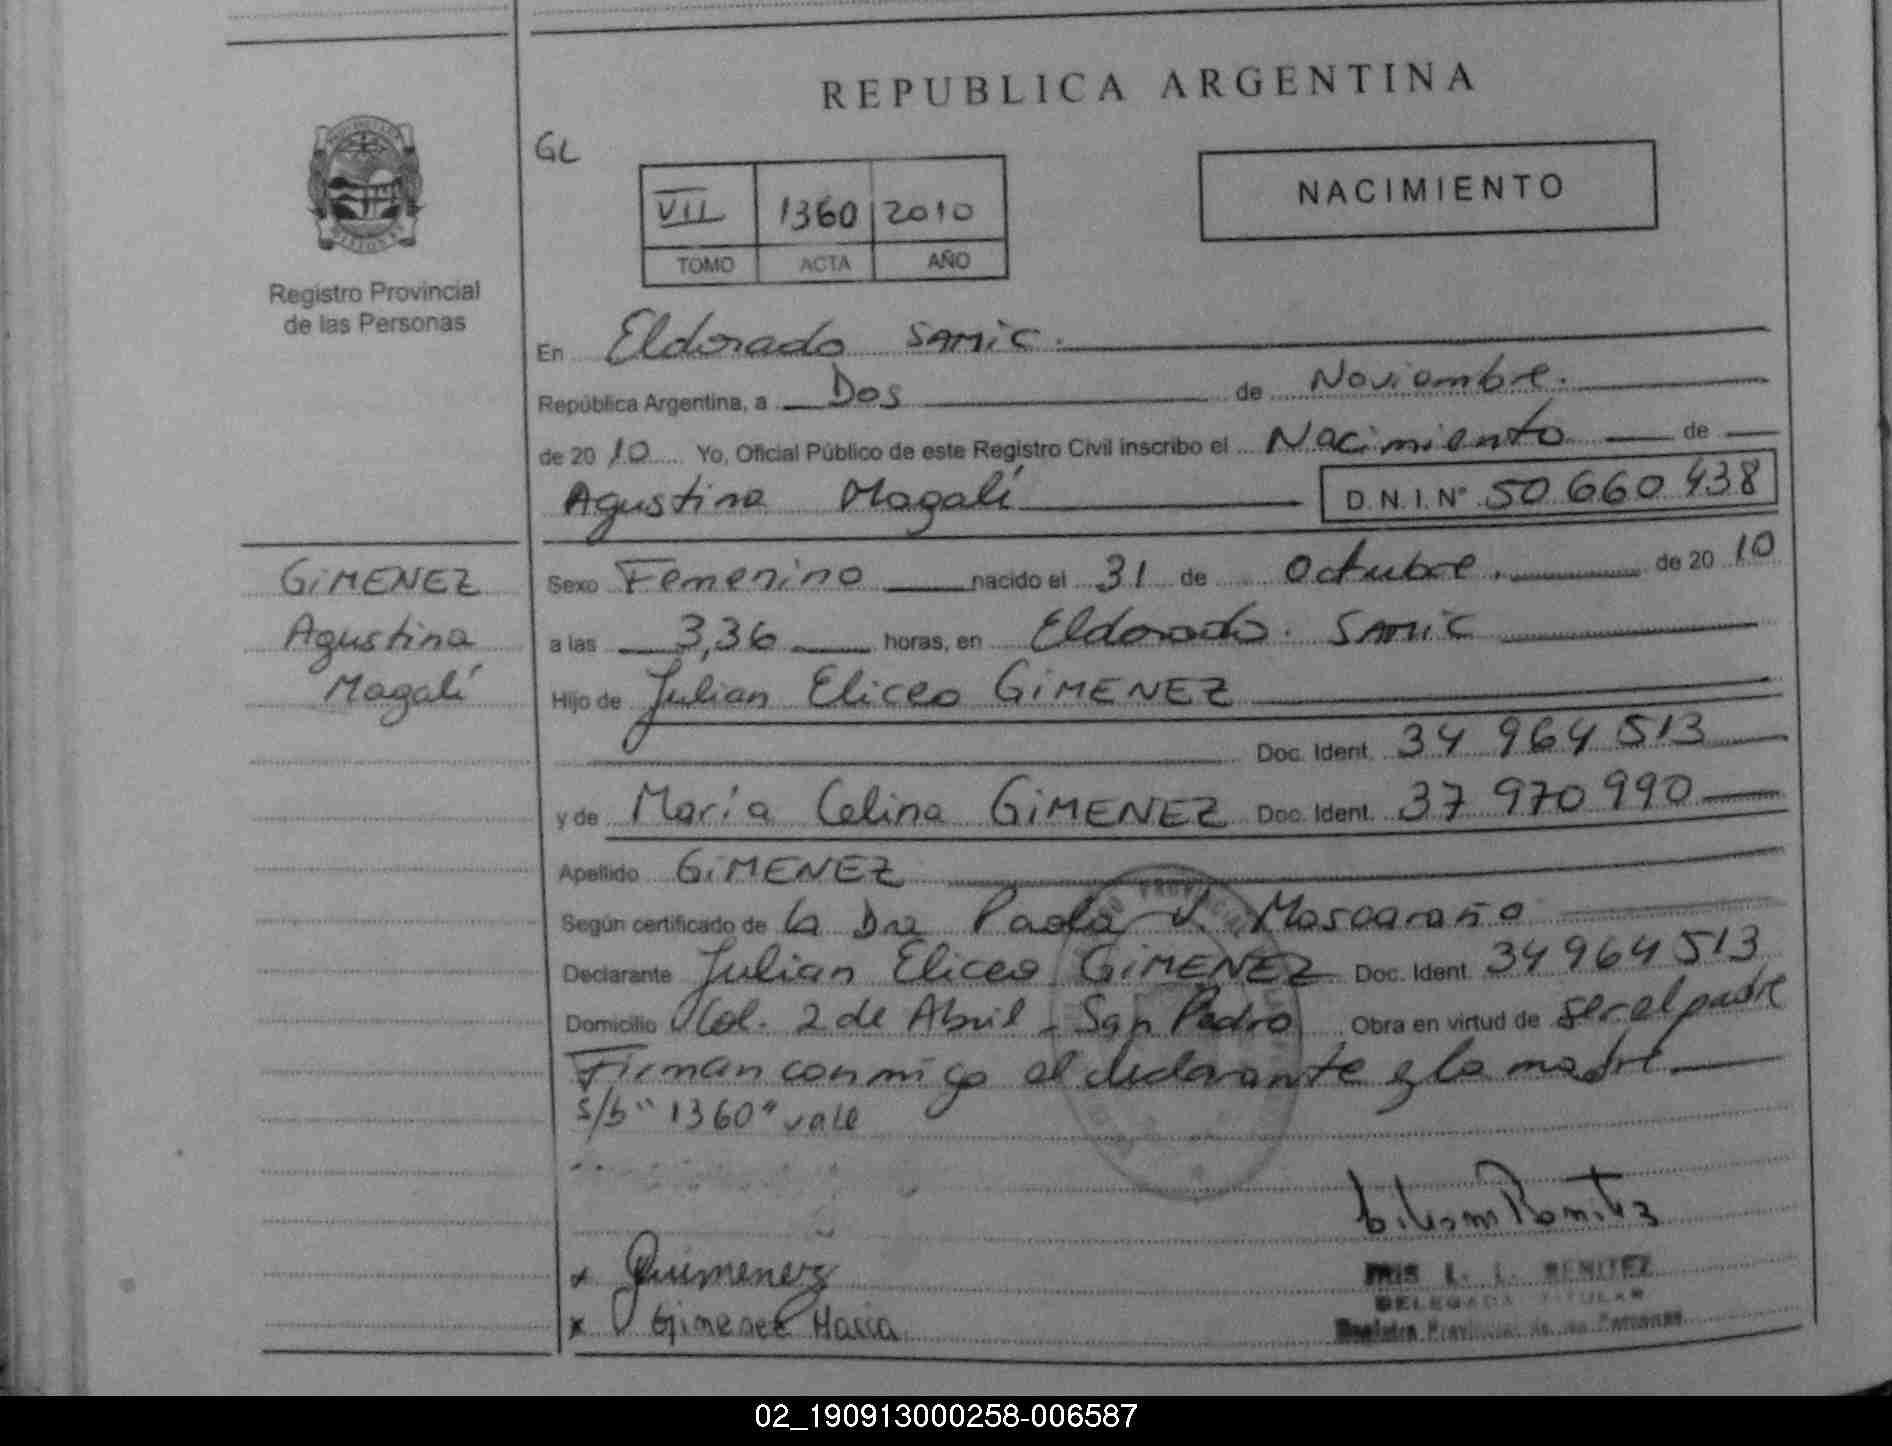 REPUBLICA ARGENTINA
GL
VII 1360 2010
TOMO ACTA AÑO
NACIMIENTO
Registro Provincial
de las Personas
En Eldorado SAMIC.
República Argentina, a Dos de Noviembre.
de 20 10 Yo, Oficial Público de este Registro Civil inscribo el Nacimiento de
Agustina Magalí D.N.I. Nº 50 660 438
GIMENEZ
Agustina
Magalí
Sexo Femenino nacido el 31 de Octubre. de 20 10
a las 3,36 horas, en Eldorado. SAMIC
Hijo de Julian Eliceo GIMENEZ
Doc. Ident. 34 964 513
y de María Celina GIMENEZ Doc. Ident. 37 970 990
Apellido GIMENEZ
Según certificado de la Dra Paola V. Moscaraño
Declarante Julian Eliceo GIMENEZ Doc. Ident. 34 964 513
Domicilio Col. 2 de Abril - San Pedro Obra en virtud de ser el padre
Firman conmigo el declarante y la madre
s/b "1360" vale
x Gimenez
x Gimenez Maria
L. L. BENITEZ
DELEGADA TITULAR
Registro Provincial de las Personas
02_190913000258-006587